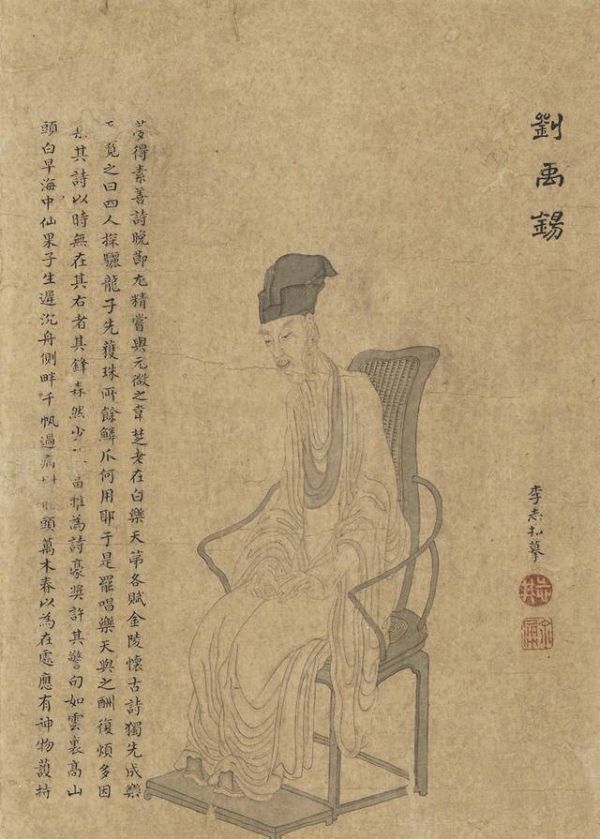 劉禹錫
李摹
夢得素善詩晚節尤精嘗與元微之韋楚老在白樂天第各賦金陵懷古詩獨先成樂
覽之曰四人探驪龍子先獲珠所餘鱗爪何用耶于是罷唱樂天與之酬復煩多因
其詩以時無在其右者其鋒森然少當推為詩豪獎許其警句如雲裏高山
頭白早海中仙果子生遲沉舟側畔千帆過病頭萬木春以為在處應有神物護持